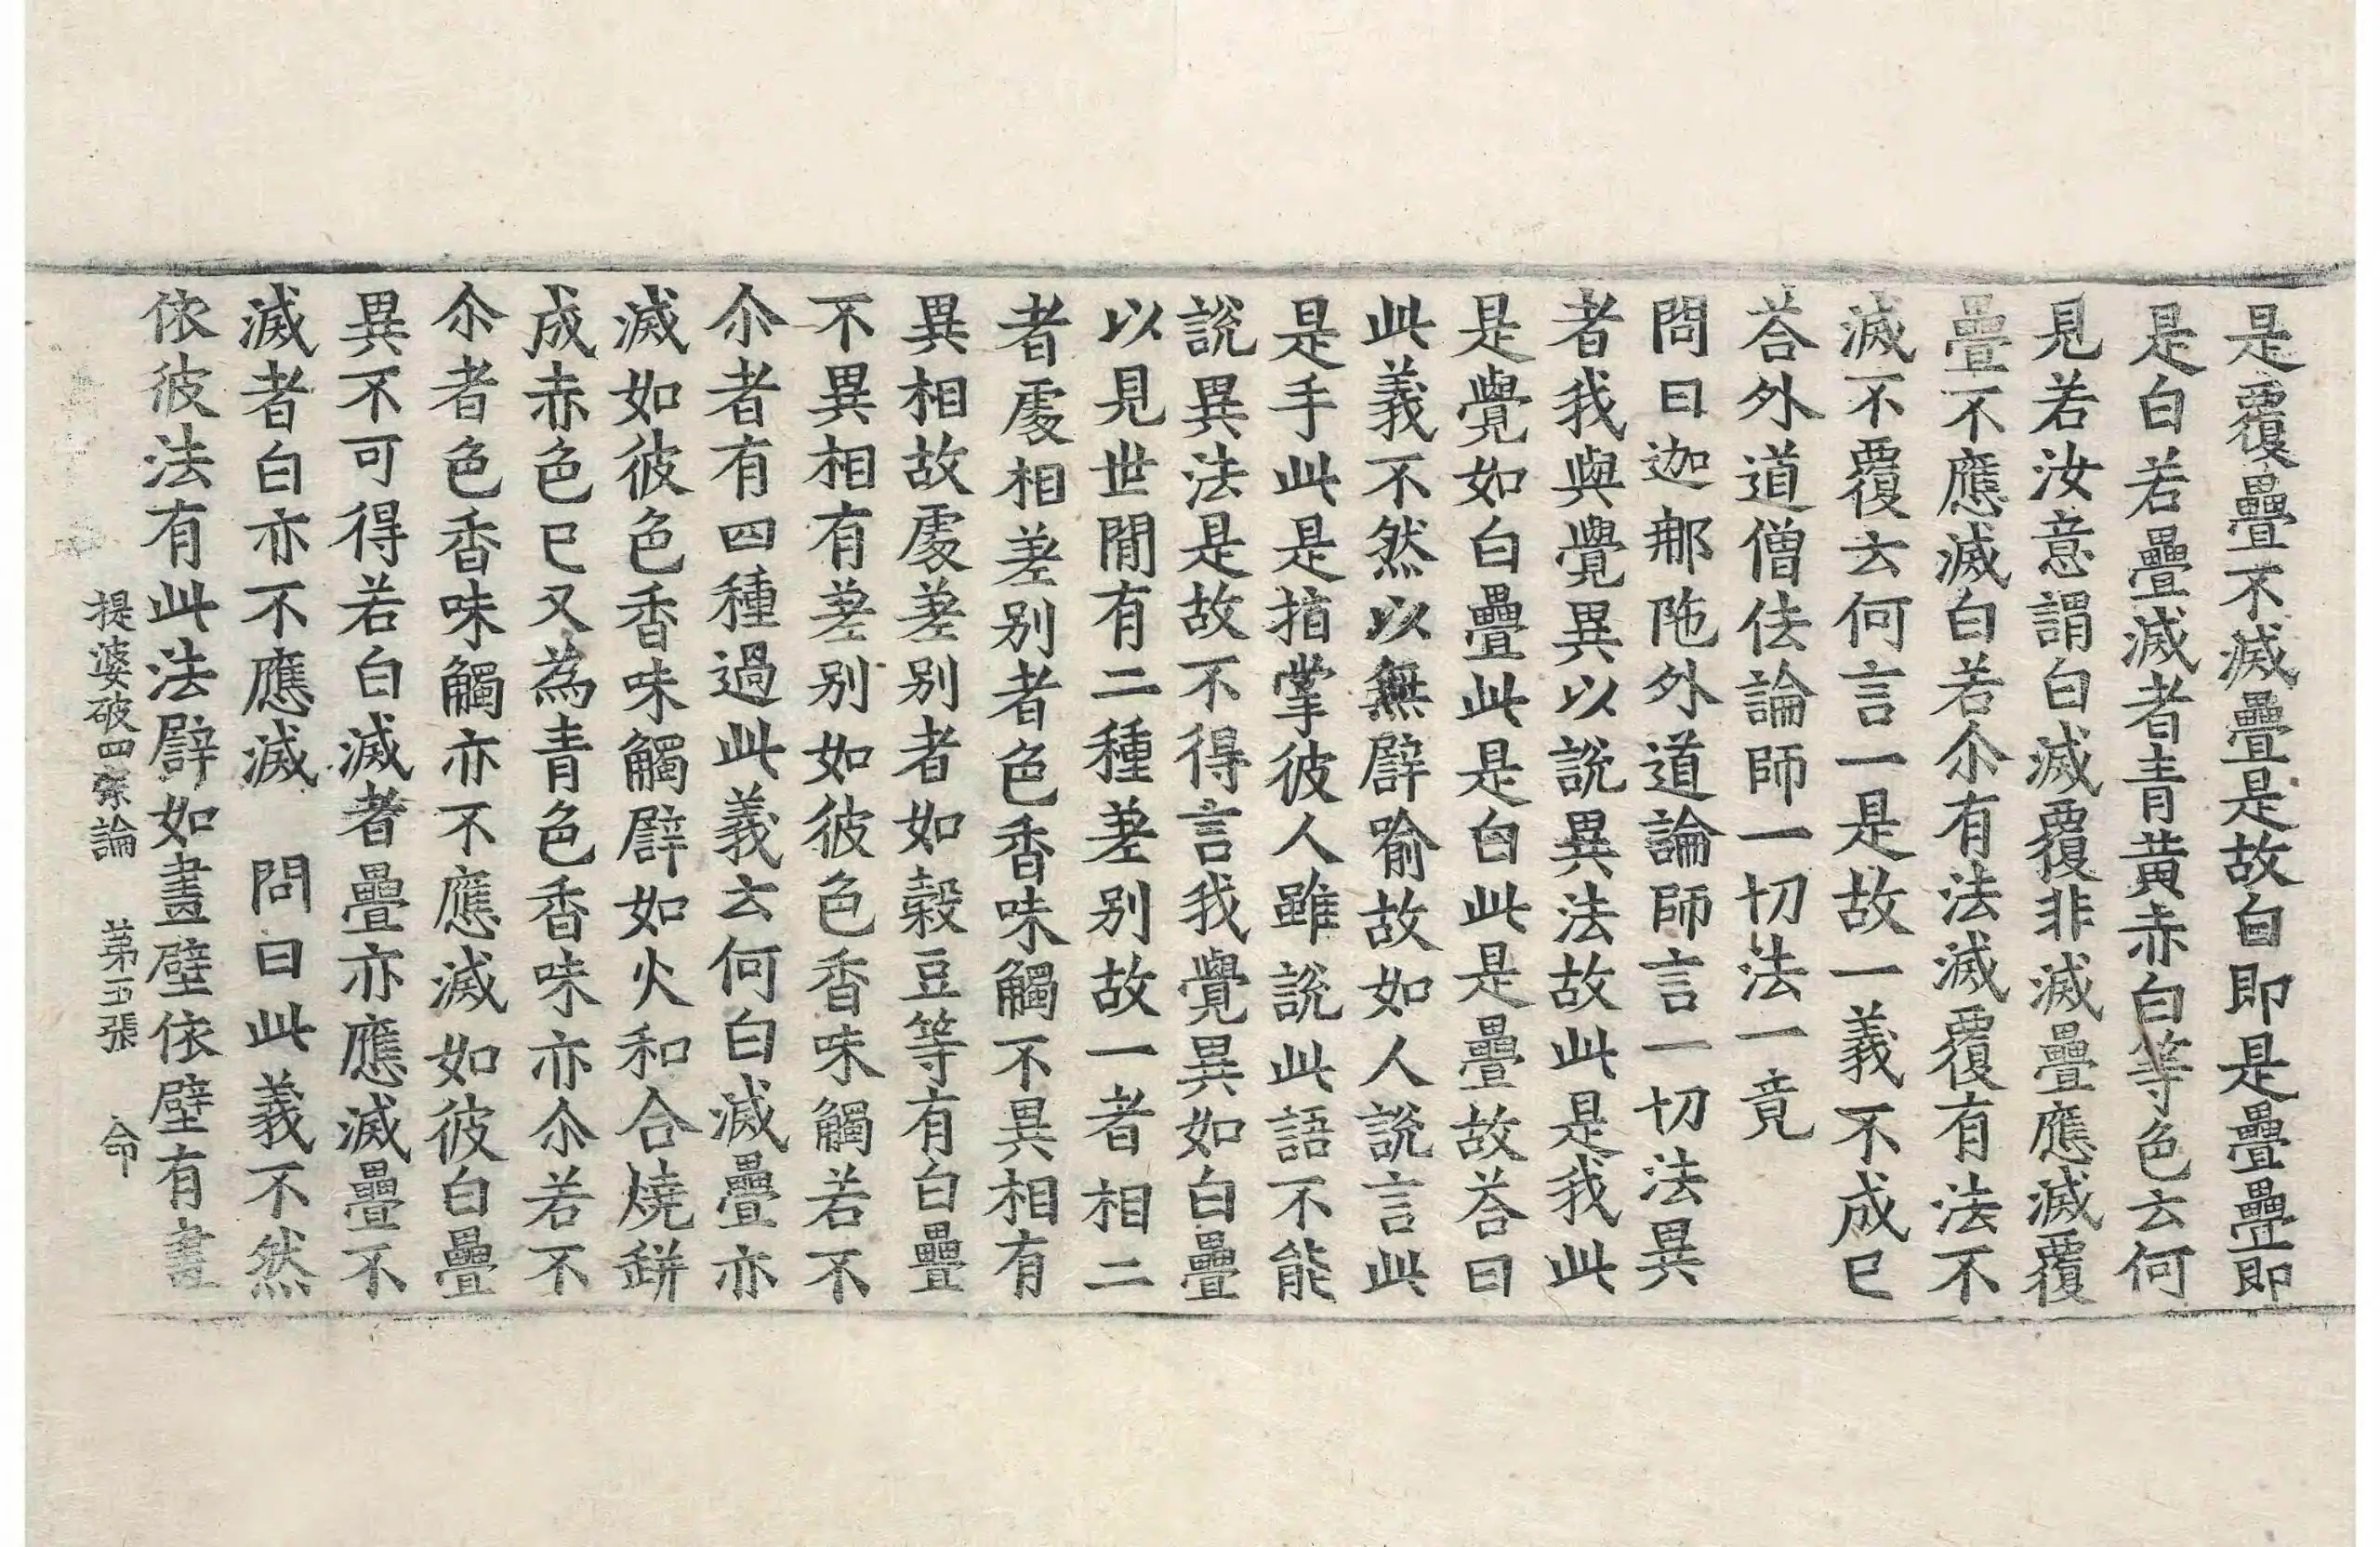 是覆疊不滅疊是故白即是疊疊即
是白若疊滅者青黃赤白等色云何
見若汝意謂白滅覆非滅疊應滅覆
疊不應滅白若尒有法滅覆有法不
滅不覆云何言一是故一義不成已
荅外道僧佉論師一切法一竟
問曰迦那陁外道論師言一切法異
者我與覺異以說異法故此是我此
是覺如白疊此是白此是疊故荅曰
此義不然以無譬喻故如人說言此
是手此是指掌彼人雖說此語不能
說異法是故不得言我覺異如白疊
以見世間有二種差別故一者相二
者處相差別者色香味觸不異相有
異相故處差別者如縠豆等有白疊
不異相有差別如彼色香味觸若不
尒者有四種過此義云何白滅疊亦
滅如彼色香味觸譬如火和合燒缾
成赤色已又為青色香味亦尒若不
尒者色香味觸亦不應滅如彼白疊
異不可得若白滅者疊亦應滅疊不
滅者白亦不應滅　問曰此義不然
依彼法有此法譬如畫壁依壁有畫
提婆破四宗論　第五張　命